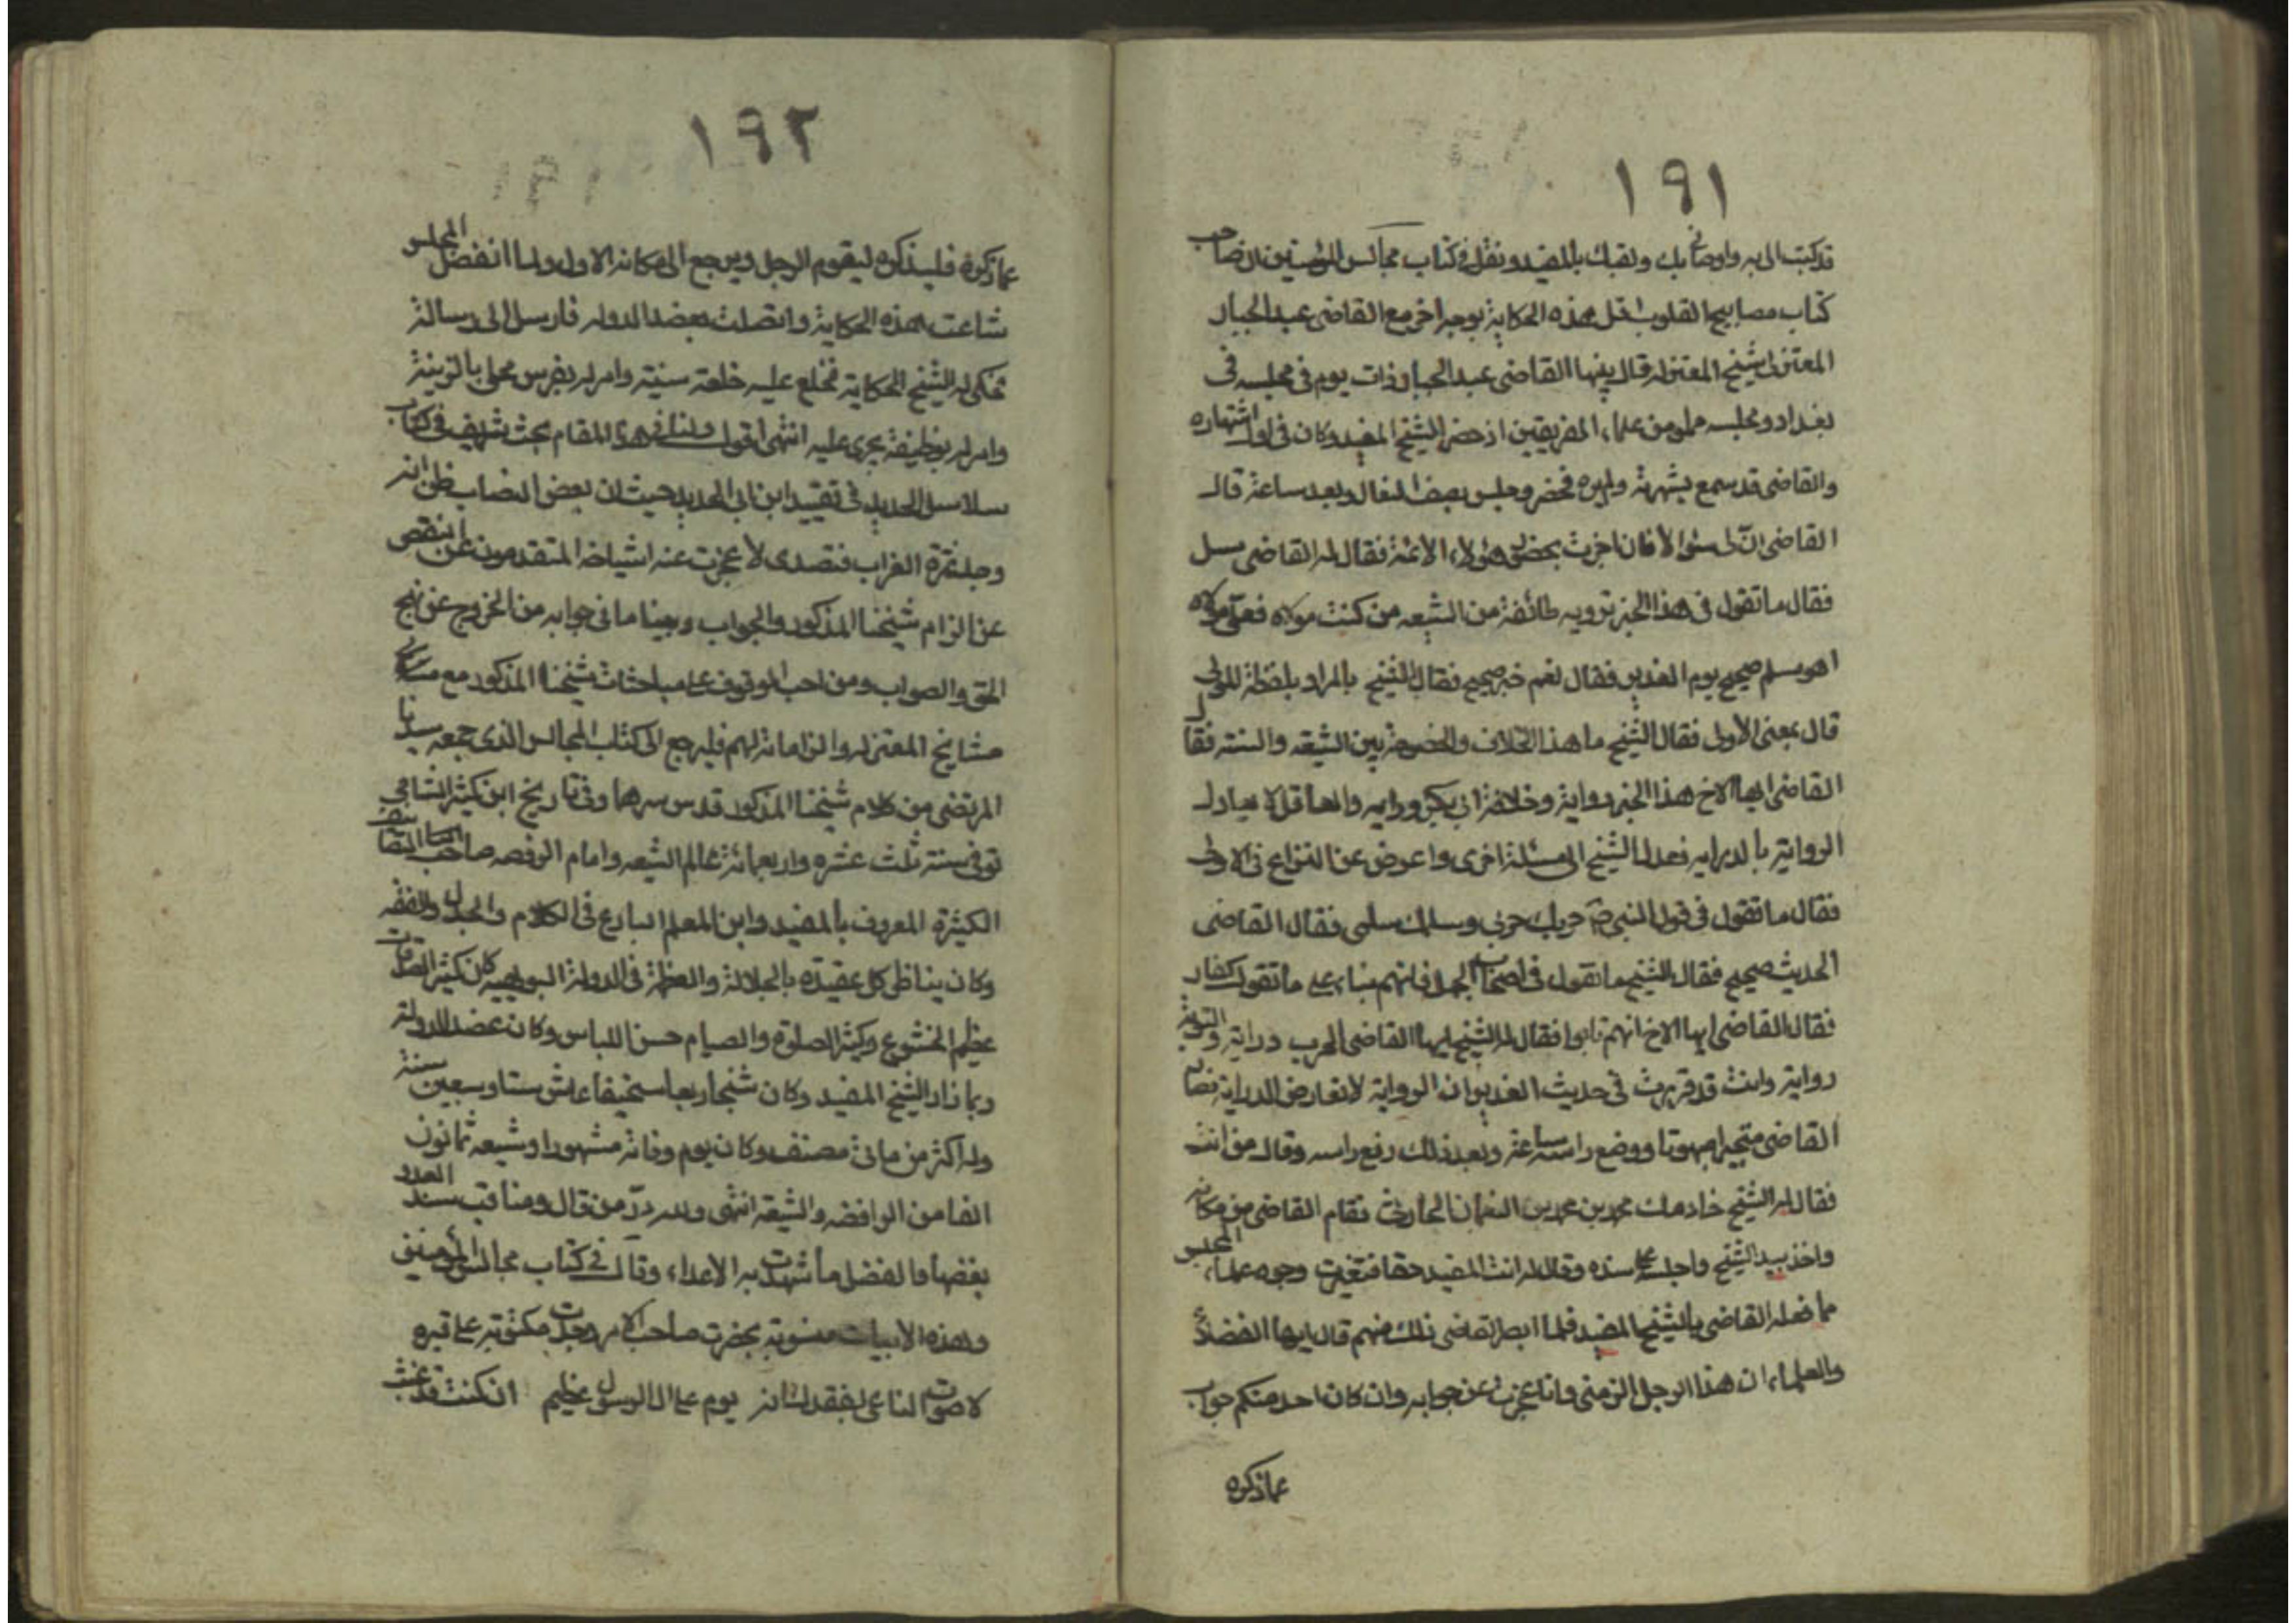 ١٩١
قد كتب الى به واوصانى بك ولقبك بالمفيد ونقل فى كتاب مجالس المؤمنين ان صاحب
كتاب مصابيح القلوب نقل هذه الحكاية بوجه اخر مع القاضى عبد الجبار
المعتزلى شيخ المعتزله قال بينما القاضى عبد الجبار ذات يوم فى مجلسه فى
بغداد ومجلسه مملو من علماء الفريقين اذ حضر الشيخ المفيد وكان فى اول اشتهاره
والقاضى قد سمع بشهرته ولم يره فحضر وجلس بصف النعال وبعد ساعة قال
القاضى ان لى سئوالا فان اجزت بحضور هؤلاء الائمة فقال له القاضى سل
فقال ما تقول فى هذا الخبر ترويه طائفة من الشيعه من كنت مولاه فعلى مولاه
اهو مسلم صحيح يوم الغدير فقال نعم خبر صحيح فقال الشيخ بالمراد بلفظة المولى
قال بمعنى الاولى فقال الشيخ ما هذا الخلاف والخصومة بين الشيعه والسنه فقال
القاضى ايها الاخ هذا الخبر رواية وخلافة ابى بكر درايه والعاقل لا يعادل
الرواية بالدرايه فعدل الشيخ الى مسئلة اخرى واعرض عن النزاع فى الاولى
فقال ما تقول فى قول النبى ص حربك حربى وسلمك سلمى فقال القاضى
الحديث صحيح فقال الشيخ ما تقول فى اصحاب الجمل فانهم بناء على ما تقول كفار
فقال القاضى ايها الاخ انهم تابوا فقال له الشيخ ايها القاضى الحرب دراية والتوبة
رواية وانت قد قررت فى حديث الغدير ان الرواية لا تعارض الدراية فصار
القاضى متحيرا مبهوتا ووضع راسه ساعة وبعد ذلك رفع راسه وقال من انت
فقال له الشيخ خادمك محمد بن محمد بن النعمان الحارثى فقام القاضى من مكانه
واخذ بيد الشيخ واجلسه على مسنده وقال له انت المفيد حقا فتغيرت وجوه علماء المجلس
مما فعله القاضى بالشيخ المفيد فلما ابصر القاضى ذلك منهم قال ايها الفضلاء
والعلماء ان هذا الرجل الزمنى وانا عجزت عن جوابه وان كان احد منكم جواب
عما ذكره
١٩٢
عما ذكره فليذكره ليقوم الرجل ويرجع الى مكانه الاول ولما انفصل المجلس
شاعت هذه الحكاية واتصلت بعضد الدوله فارسل الى رسالة
فحكى له الشيخ الحكاية فخلع عليه خلعة سنية وامر له بفرس محلى بالزينة
وامر له بوظيفة يجرى عليه انتهى اقول ولنا فى هذا المقام بحث شريف فى كتاب
سلاسل الحديد فى تقييد ابن ابى الحديد حيث ان بعض النصاب ظن انه
وجد تمرة الغراب فتصدى لا عجزت عنه اشياخه المتقدمون عن النقص
عن الزام شيخنا المذكور والجواب وبينا ما فى جوابه من الخروج عن نهج
الحق والصواب ومن احب الوقوف على مباحثات شيخنا المذكور مع ساير
مشايخ المعتزله والزاماته لهم فليرجع الى كتاب المجالس الذى جمعه سيدنا
المرتضى من كلام شيخنا المذكور قدس سرهما وفى تاريخ ابن كثير الشامى
توفى سنة ثلث عشره واربعمائة عالم الشيعه وامام الرفضه صاحب التصانيف
الكثيرة المعروف بالمفيد وابن المعلم البارع فى الكلام والجدل والفقه
وكان يناظر كل عقيده بالجلالة والعظمة فى الدولة البويهيه كان كثير الصدقات
عظيم الخشوع وكثير الصلوة والصيام حسن اللباس وكان عضد الدولة
ربما زار الشيخ المفيد وكان شيخا ربعا نحيفا عاش ستا وسبعين سنة
وله اكثر من مائة مصنف وكان يوم وفاته مشهورا وشيعه ثمانون
الفا من الرافضه والشيعة انتهى ولله در من قال ومناقب شهد العدو
بفضلها والفضل ما شهدت به الاعداء وقال فى كتاب مجالس المؤمنين
وهذه الابيات منسوبة بحضرت صاحب الامر وجدت مكتوبة على قبره
لا صوت الناعى بفقدك انه يوم على ال الرسول عظيم ان كنت قد غيبت